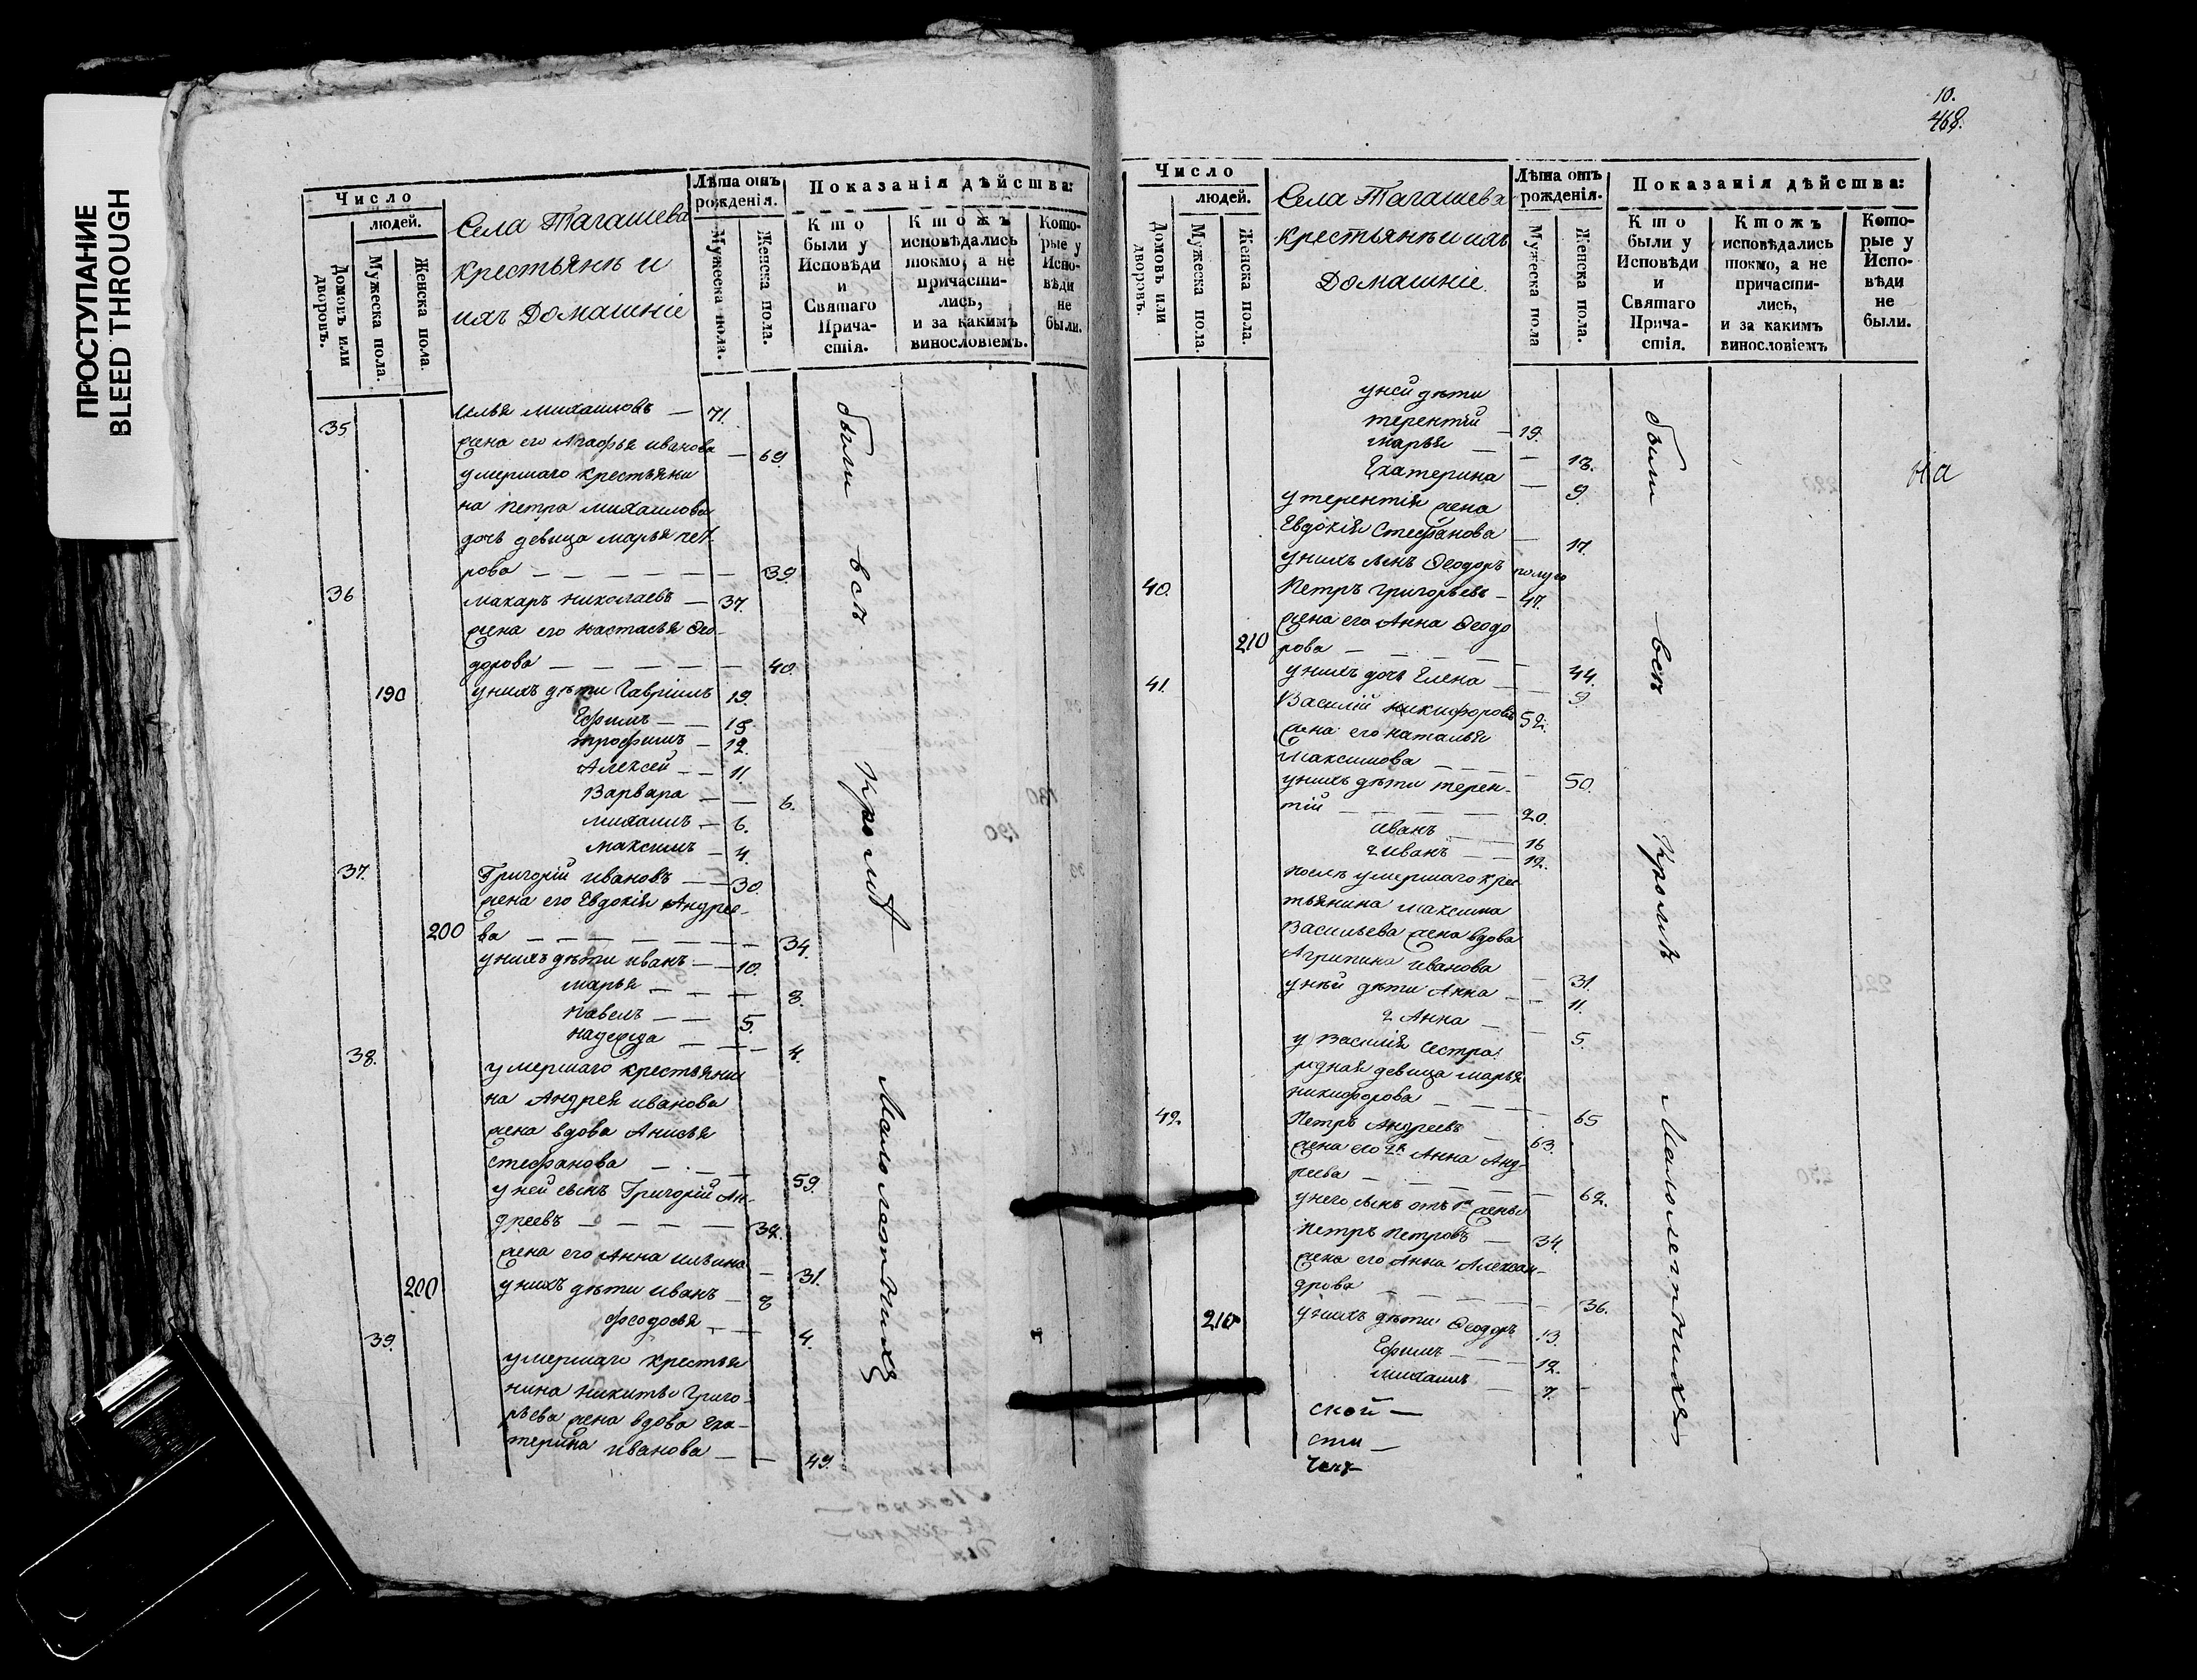 ПРОСТУПАНИЕ
BLEED THROUGH
Число
людей.
Домовъ или дворовъ.
Мужеска пола.
Женска пола
Села Тагашева
крестьянъ и
ихъ Домашніе
Лѣта отъ рожденія.
Мужеска пола.
Женска пола.
Показанія дѣйства:
Кто были у Исповѣди и Святаго Прича-стія.
Ктожъ исповѣдались токмо, а не причасти-лись, и за какимъ винословіемъ.
Кото-рые у Испо-вѣди не были.
35 Илья Михаиловъ — 71.
жена его Агафья Иванова — 69
умершаго крестьяни
на Петра Михаилова
дочь девица Марья пет
рова — 39
36 Макаръ Николаевъ — 37.
жена его Настасья Ѳео-
дорова — 40.
190 у нихъ дѣти Гавріилъ 19.
Ефимъ — 15
Трофимъ — 12.
Алексей — 11.
Варвара — 6.
Михаилъ — 6.
Максимъ — 4.
37. Григорій Ивановъ — 30.
жена его Евдокія Андрее-
200 ва — 34.
у нихъ дѣти Иванъ — 10.
Марья — 8.
Павелъ — 5.
Надежда — 4.
38. умершаго крестьяни
на Андрея Иванова
жена вдова Анисья
Стефанова — 59.
у ней сынъ Григорій Ан-
дреевъ — 32.
жена его Анна Ильина — 31.
200 у нихъ дѣти Иванъ — 8
Феодосья — 4.
39. умершаго крестья
нина Никиты Григо-
рьева жена вдова Ека-
терина Иванова — 49.
были всѣ кромѣ Малолѣтнихъ
10.
468.
Число
людей.
Домовъ или дворовъ.
Мужеска пола.
Женска пола.
Села Тагашева
крестьянъ и ихъ
Домашніе.
Лѣта отъ рожденія.
Мужеска пола
Женска пола.
Показанія дѣйства:
Кто были у Исповѣди и Святаго Прича-стія.
Ктожъ исповѣдались токмо, а не причасти-лись, и за какимъ винословіемъ
Кото-рые у Испо-вѣди не были.
у ней дѣти
Терентій — 19.
Марья — 13.
Екатерина — 9
у Терентія жена
Евдокія Стефанова — 17.
у нихъ сынъ Ѳеодоръ полуго
40. Петръ Григорьевъ — 47.
жена его Анна Ѳеодо
210 рова — 44.
у нихъ дочь Елена — 9
41. Василій Никифоровъ 52.
жена его Наталья
Максимова — 50.
у нихъ дѣти Терен-
тій — 20.
Иванъ — 16
2 Иванъ — 12.
послѣ умершаго крес
тьянина Максима
Васильева жена вдова
Агрипина Иванова — 31.
у ней дѣти Анна — 11.
2 Анна — 5.
у Василія сестра
родная девица Марья
Никифорова — 65
42 Петръ Андреевъ — 63.
жена его 2я Анна Анд-
реева — 62.
у него сынъ отъ 1й жены
Петръ Петровъ — 34.
жена его Анна Алексан-
дрова — 36.
210 у нихъ дѣти Ѳеодоръ 13
Ефимъ — 12.
Михаилъ — 7.
ской —
сти —
были всѣ кромѣ Малолетнихъ
на